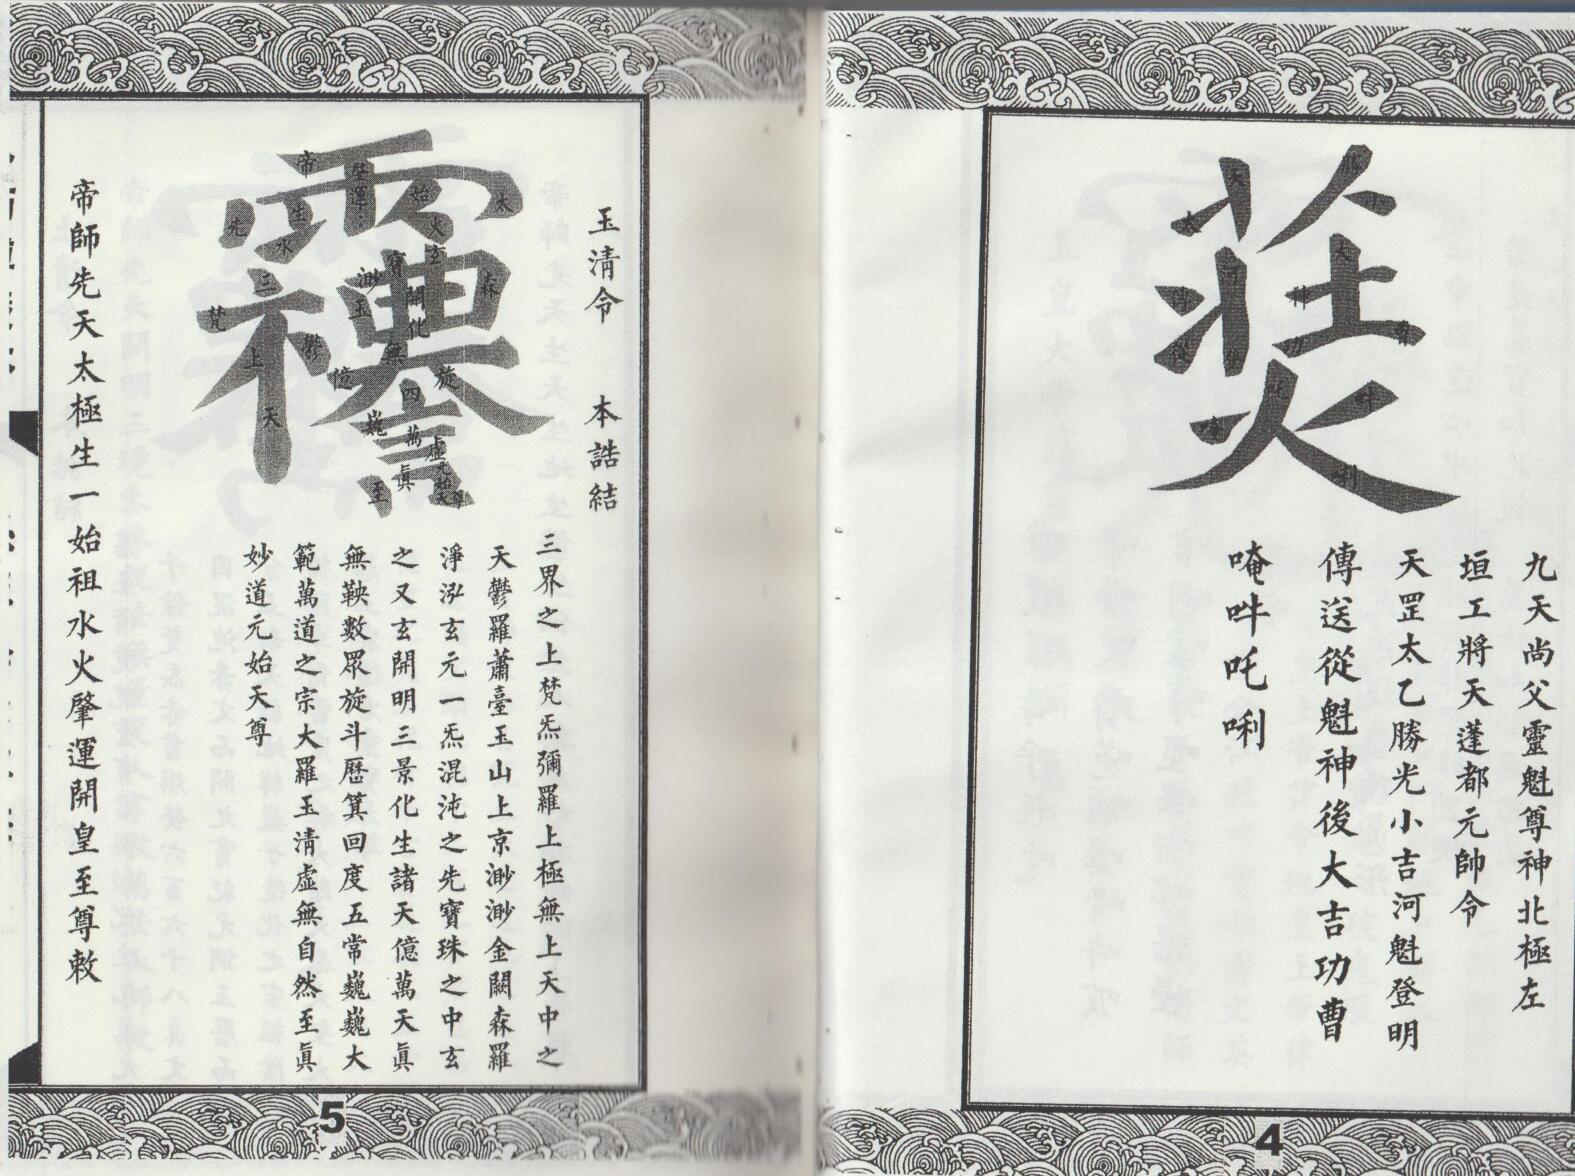 九天尚父靈魁尊神北極左
垣工將天蓬都元帥令
天罡太乙勝光小吉河魁登明
傳送從魁神後大吉功曹
唵吽吒唎
4
玉清令 本誥結
三界之上梵炁彌羅上極無上天中之
天鬱羅蕭臺玉山上京渺渺金闕森羅
淨泓玄元一炁混沌之先寶珠之中玄
之又玄開明三景化生諸天億萬天眞
無鞅數眾旋斗厯箕回度五常巍巍大
範萬道之宗大羅玉清虛無自然至眞
妙道元始天尊
帝師先天太極生一始祖水火肇運開皇至尊敕
5